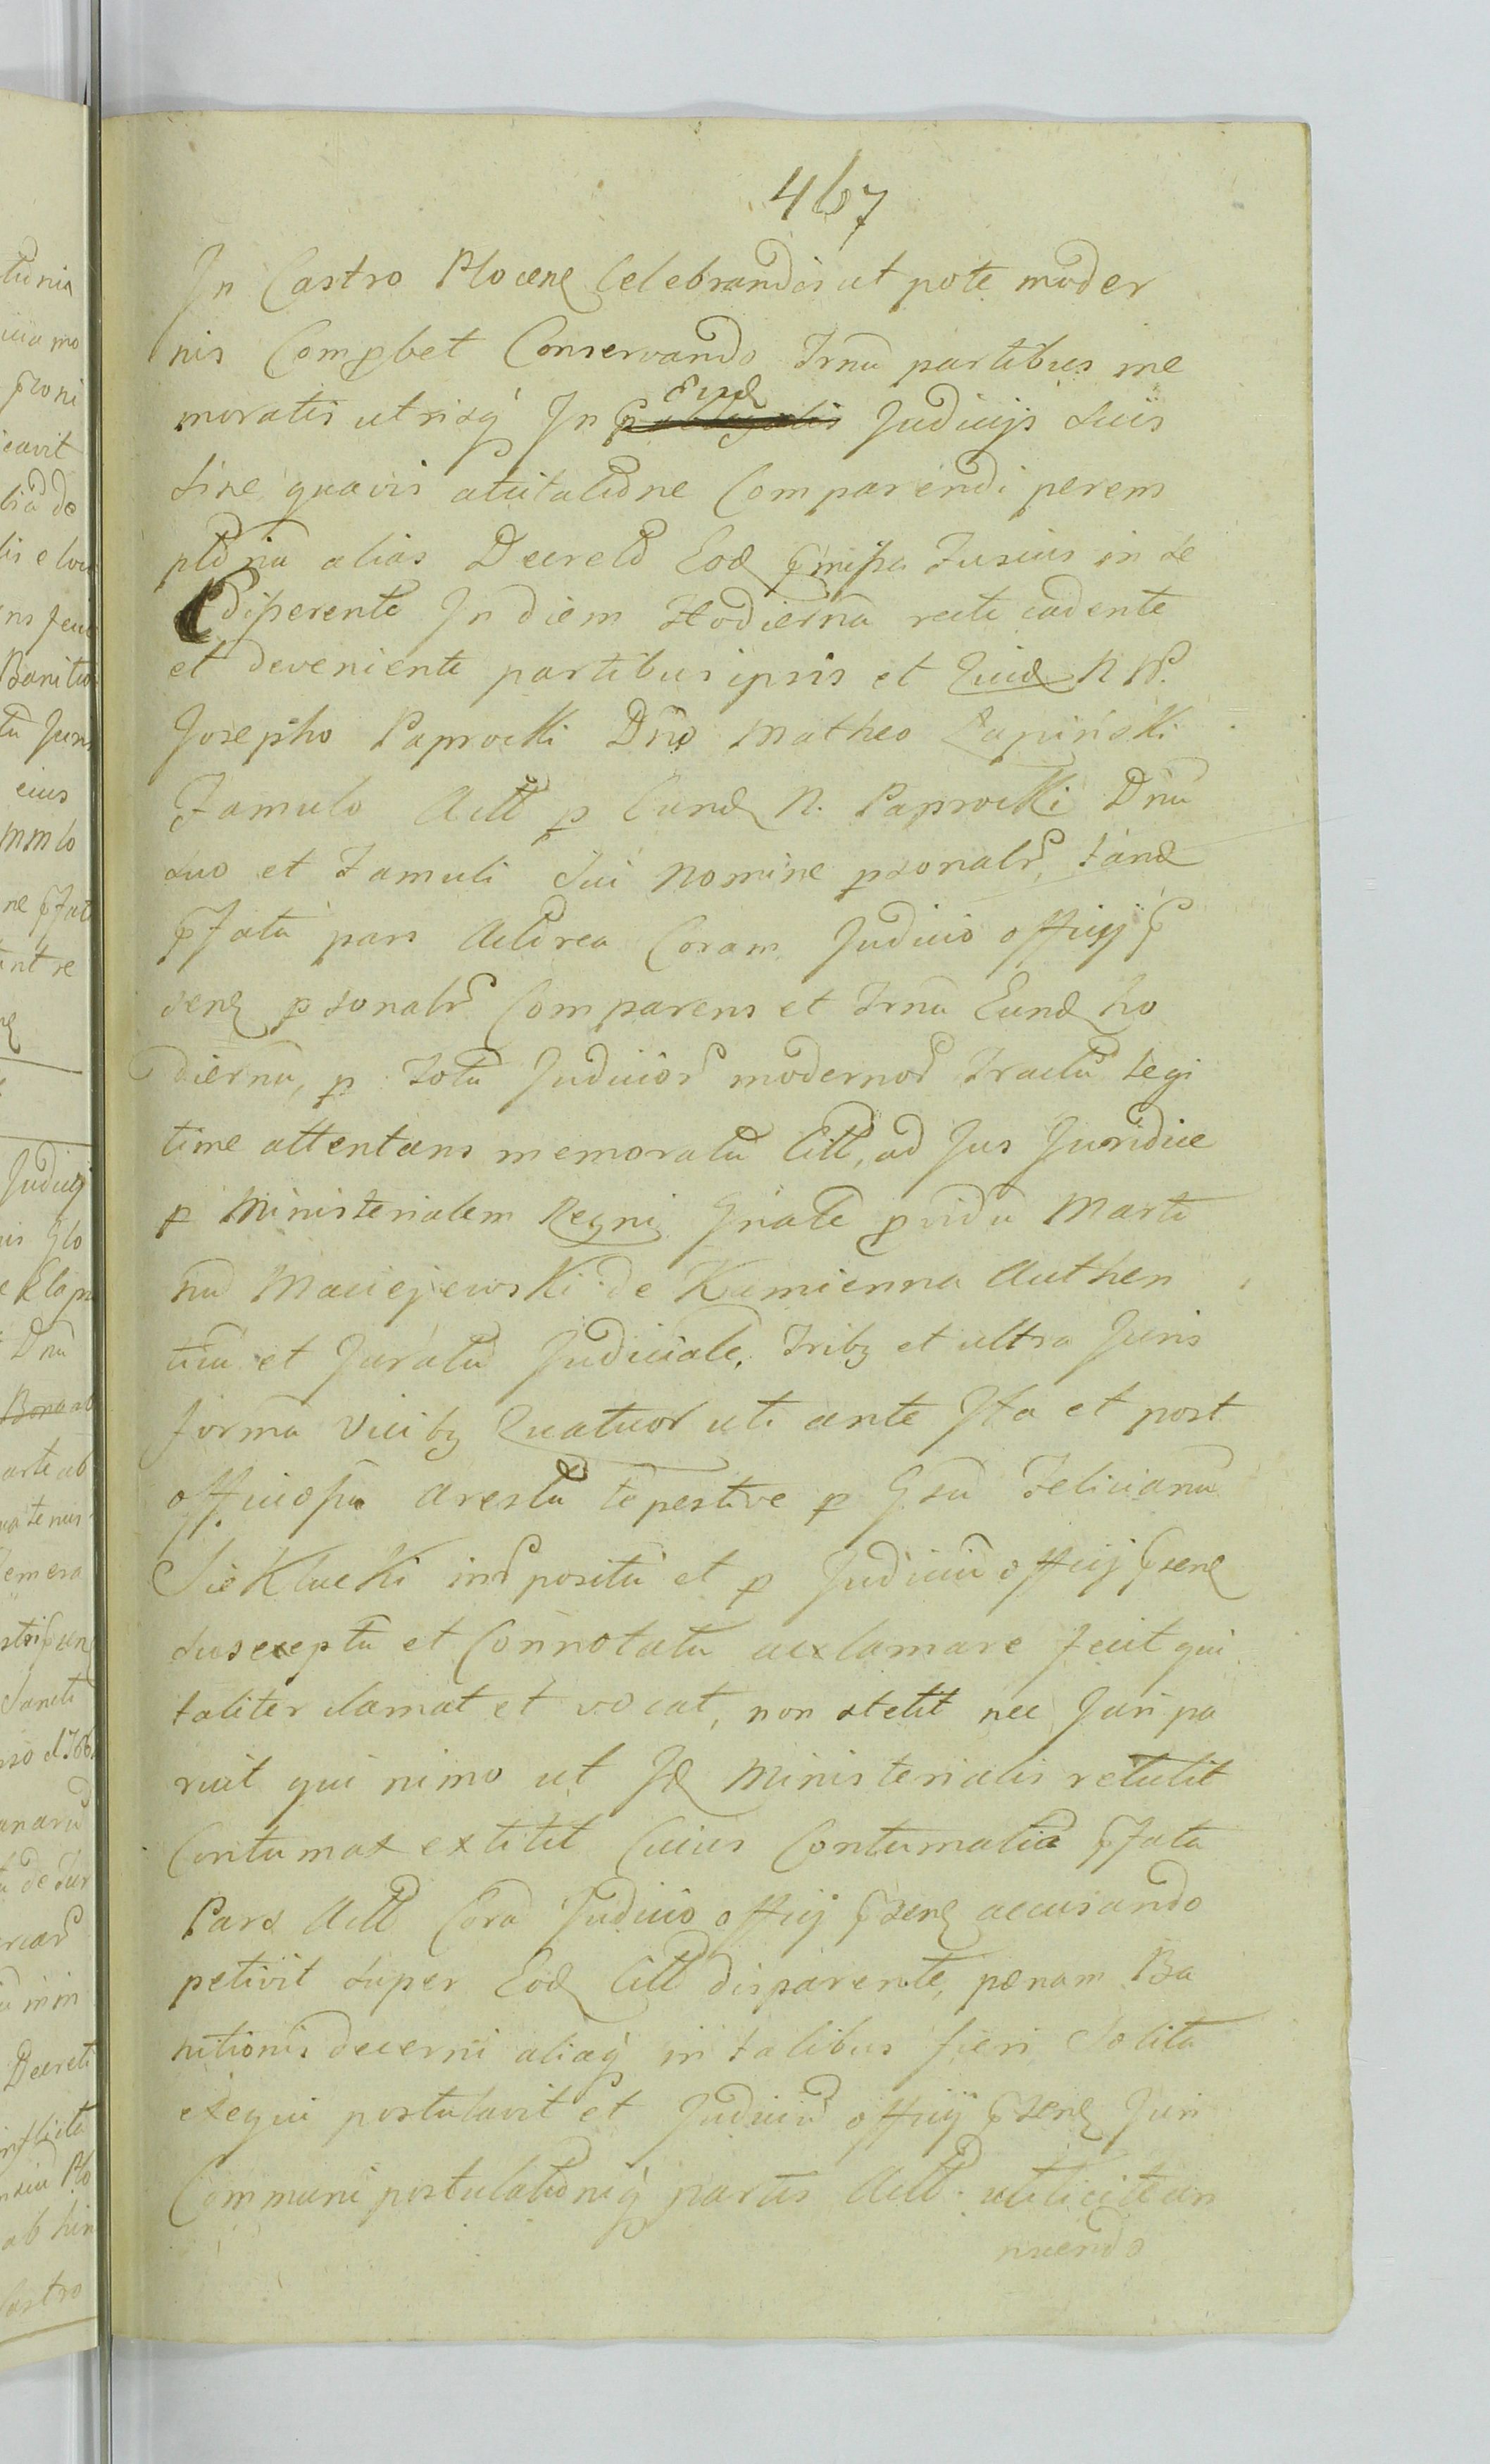 467
In Castro Plocen Celebrandis ut pote moder
nis Compbet Conservando Trnu partibus me
moratis utrisq In Eisd Judicijs suis
sine quavis atcitatione Comparendi perem
ptoriu alias Decreto Eod pmisso fusius in se
disserente In diem Hodiernu recte cadente
et deveniente partibus ipsis et Quid N N.
Josepho Paprocki Dno Matheo Łapiński
Famulo Citt p Eund N. Paprocki Dnu
suo et Famuli sui nomine psonalr, tand
pfata pars Actorea Coram Judicio officij p
sens psonalr Comparens et Trnu Eund ho
diernu, p Totu Judicior modernor Tractu legi
time attentans memoratu Citt, ad Jus Juridice
p Ministerialem Regni Gnale pvidu Marti
nu Maciejewski de Kamienna Authen
ticu et Juratu Judiciale, Tribq et ultra Juris
forma Vicibq Quatuor uti ante Ita et post
officiosu Arestu tepestive p Gsu Felicianu
Sieklucki interpositu et p Judiciu officij psens
susceptu et Connotatu acclamare fecit qui
taliter clamat et vocat, non stetit nec Juri pa
ruit qui nimo ut Id Ministerialis retulit
Contumax extitit Cuius Contumatia pfata
Pars Act Cora Judicio officij psens accusando
petivit super Eod Citt disparente, pœnam Ba
nitionis decerni aliaq in talibus fieri Solita
exequi postulavit et Judiciu officij psens Juri
Communi postulationiq partis Act uti licite an
nuendo
tunia
cavit
Banitio
eius
Judicij
Dnu
Bona
Sancti
Decreti
ab hin
Castro